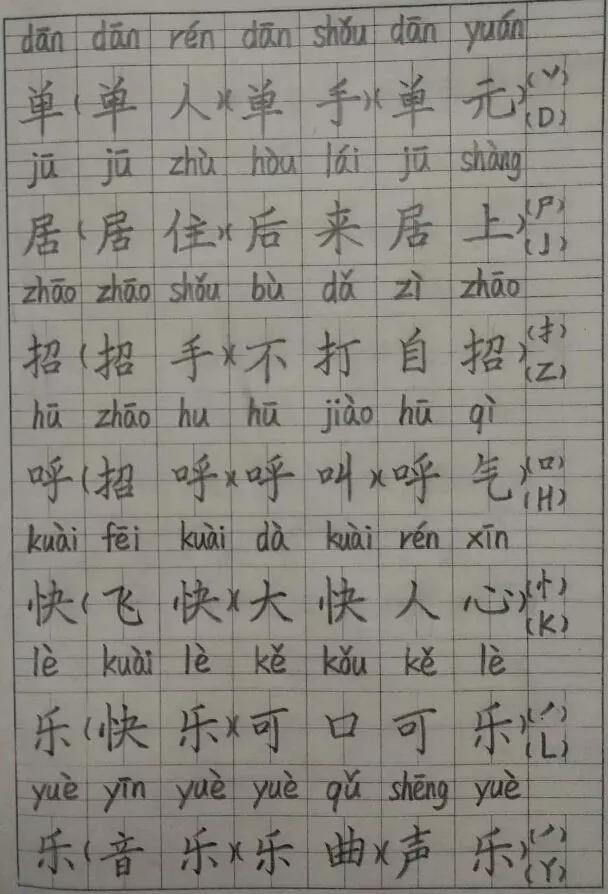 dān dān rén dān shǒu dān yuán
单(单人)(单手)(单元)(丷)(D)
jū jū zhù hòu lái jū shàng
居(居住)(后来居上)(尸)(J)
zhāo zhāo shǒu bù dǎ zì zhāo
招(招手)(不打自招)(扌)(Z)
hū zhāo hu hū jiào hū qì
呼(招呼)(呼叫)(呼气)(口)(H)
kuài fēi kuài dà kuài rén xīn
快(飞快)(大快人心)(忄)(K)
lè kuài lè kě kǒu kě lè
乐(快乐)(可口可乐)(丿)(L)
yuè yīn yuè yuè qǔ shēng yuè
乐(音乐)(乐曲)(声乐)(丿)(Y)